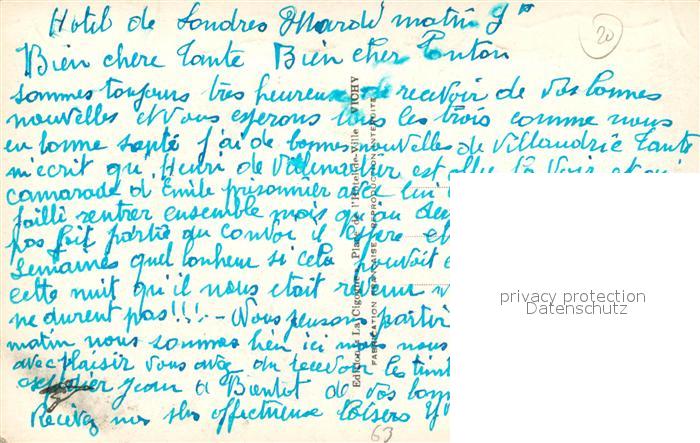 Hotel de Londres Mardi matin 9h
Bien chere Tante Bien cher Tonton
sommes toujours très heureux de recevoir de vos bonnes
nouvelles et vous esperons tous les trois comme nous
en bonne santé j'ai de bonnes nouvelles de Villandrie Tante
m'ecrit qu'Henri de est allé la voir et
camarade d'Emile prisonnier avec lui
failli rentrer ensemble mais qu'au
pas fait partie du convoi il espere
semaines quel bonheur si cela pouvait
cette nuit qu'il nous etait revenu
ne durent pas!!! - Nous pensons partir
matin nous sommes bien ici mais nous
avec plaisir vous avez du recevoir les
Jean a Bientot de vos
Recevez nos plus affectueux baisers
20
63
Edition « La Cigogne », Place de l'Hôtel-de-Ville - VICHY
FABRICATION FRANÇAISE - REPRODUCTION INTERDITE
privacy protection
Datenschutz